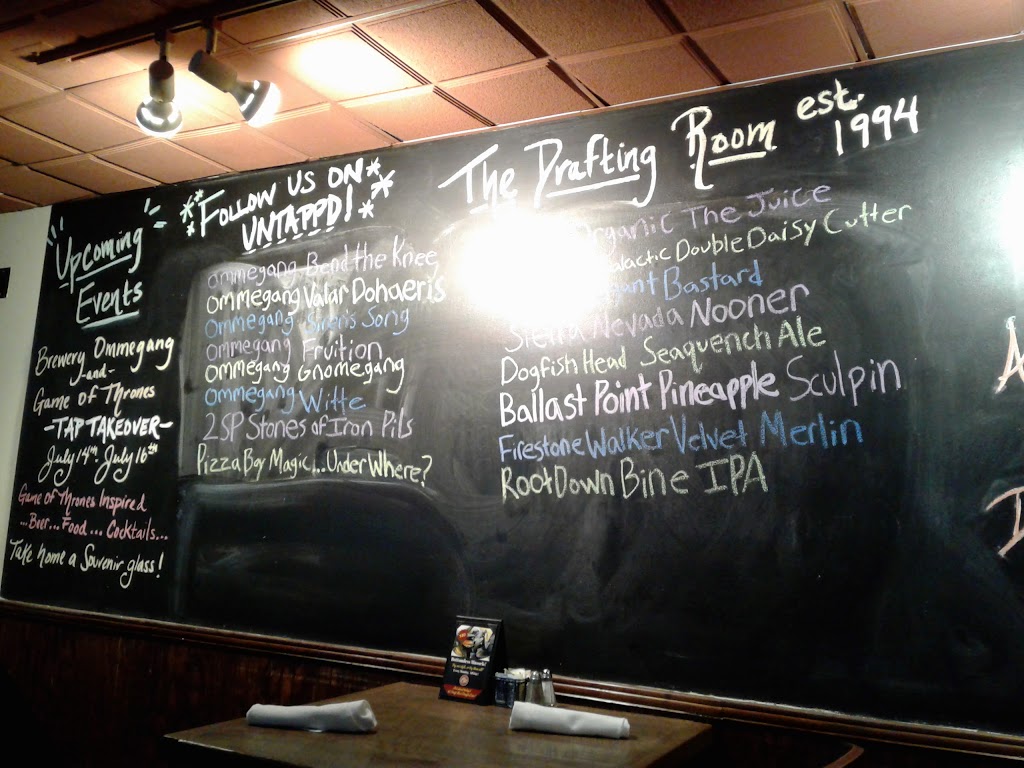 Upcoming
Events
Brewery Ommegang
-and-
Game of Thrones
-TAP TAKEOVER-
July 14th - July 16th
Game of Thrones Inspired
...Beer... Food... Cocktails...
Take home a Souvenir glass!
*Follow us on*
*UNTAPPD!*
Ommegang Bend the Knee
Ommegang Valar Dohaeris
Ommegang Siren's Song
Ommegang Fruition
Ommegang Gnomegang
Ommegang Witte
2SP Stones of Iron Pils
Pizza Boy Magic...Under Where?
The Drafting Room est.
1994
Organic The Juice
Galactic Double Daisy Cutter
Bastard
Sierra Nevada Nooner
Dogfish Head Seaquench Ale
Ballast Point Pineapple Sculpin
Firestone Walker Velvet Merlin
Root Down Bine IPA